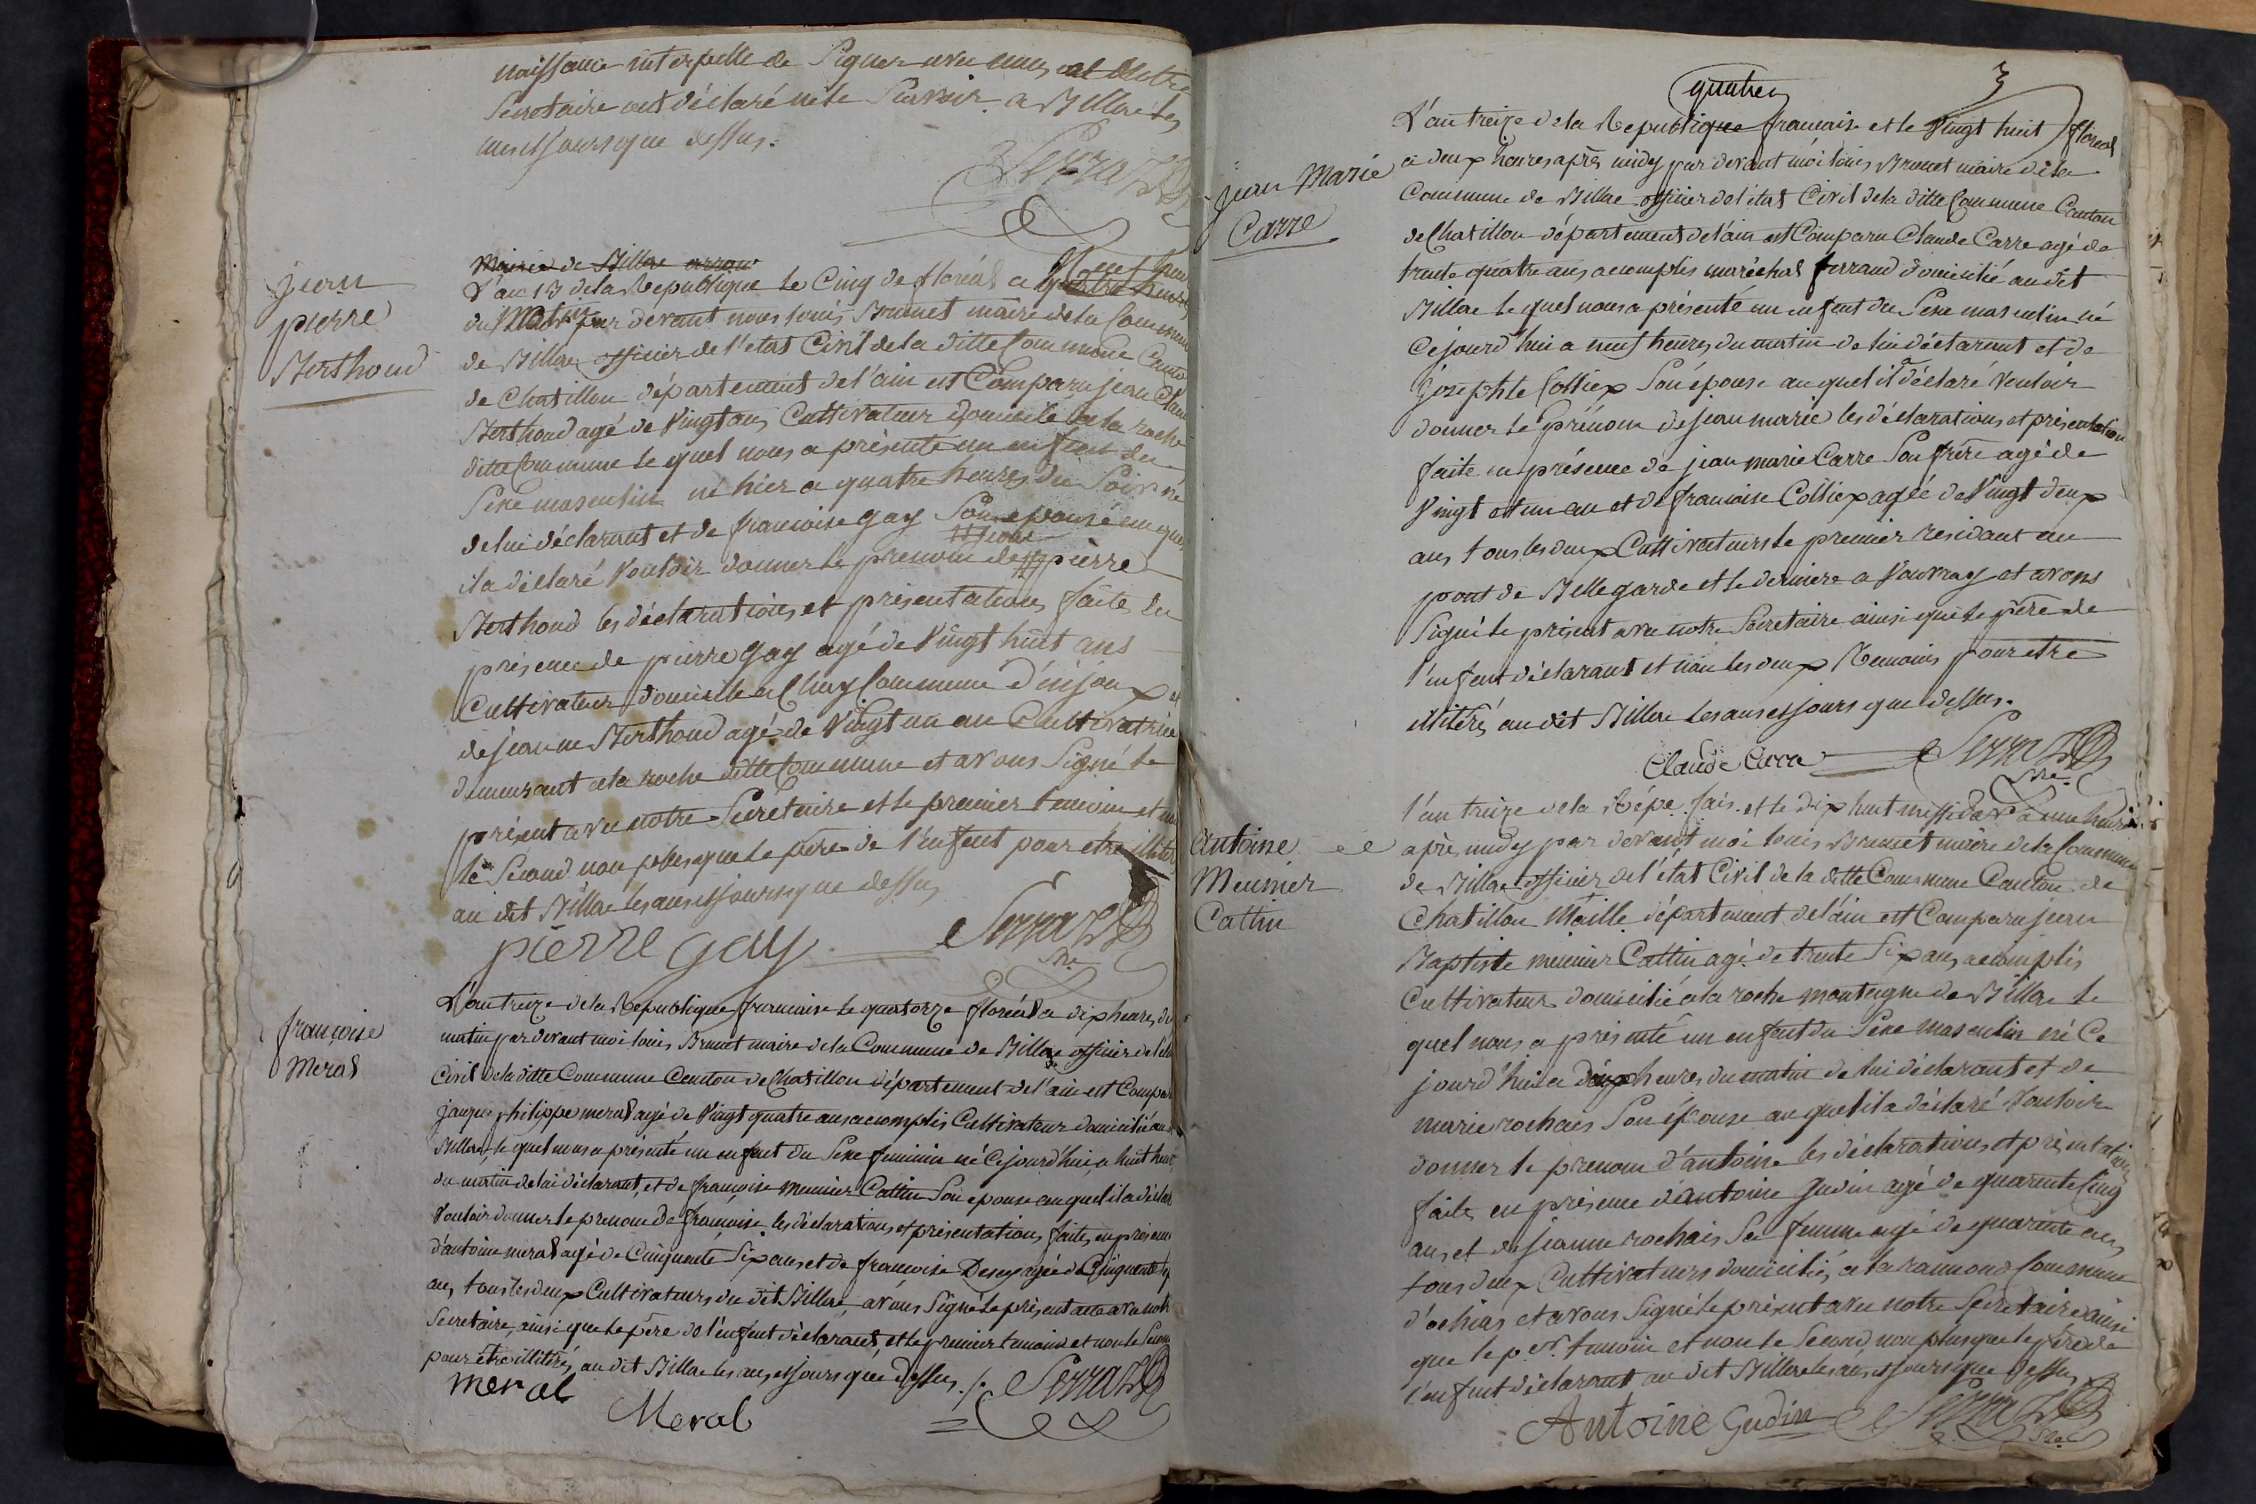 naissance interpellé de Signer avec nous et Notre
Secretaire ont déclaré ne le Scavoir a Billiat les
ans et jours que dessus.
jean
pierre
Berthoud
Mairie de Billiat
L'an 13 de la Republique le Cinq de floréal a
du Matin par devant nous louis Brunet maire de la Commune
de Billiat officier de l'etat Civil de la ditte Commune Canton
de Chatillon département de l'ain est Comparu jean Claude
Berthoud agé de Vingt ans Cultivateur domicilié a la roche
ditte Commune le quel nous a présenté un enfant du
Sexe masculin né hier a quatre heures du Soir né
de lui déclarant et de francoise gay Son epouse au quel
il a déclaré Vouloir donner le prenom de pierre
Berthoud les déclarations et présentations faites en
présence de pierre gay agé de Vingt huit ans
Cultivateur domicilié a Chay Commune d'injoux et
de jeanne Berthoud agé de Vingt un an Cultivatrice
demeurant a la roche ditte Commune et avons Signé le
présent avec notre Secretaire et le premier temoin et non
le Second non plus que le père de l'enfent pour etre illiteré
au dit Billiat les ans et jours que dessus
pierre gay
francoise
Meral
L'an treize de la Republique francaise le quatorze floréal a dix heures du
matin par devant moi louis Brunet maire de la Commune de Billiat officier de l'etat
Civil de la ditte Commune Canton de Chatillon département de l'ain est Comparu
jacque philippe meral agé de Vingt quatre ans acomplis Cultivateur domicilié au dit
Billiat, le quel nous a présenté un enfent du Sexe feminin né Cejourd'hui a huit heures
du matin de lui déclarant, et de francoise meunier Cattin Son epouse au quel il a déclaré
Vouloir donner le prenom de francoise les déclarations et présentations faites en présence
d'antoine meral agé de Cinquante Six ans et de francoise agée de Cinquante
ans, tous les deux Cultivateurs du dit Billiat, avons Signé le présent acte avec notre
Secretaire, ainsi que le père de l'enfent déclarant, et le premier temoin et non le Second
pour être illitéré, au dit Billiat les ans et jours que Dessus
meral
Meral
quatre
3
jean Marie
Carre
L'an treize de la Republique francaise et le Vingt huit floreal
a deux heures après midy par devant moi louis Brunet maire de la
Commune de Billiat officier de l'etat Civil de la ditte Commune Canton
de Chatillon département de l'ain est Comparu Claude Carre agé de
trente quatre ans acomplis maréchal ferrand domicilié au dit
Billiat le quel nous a présenté un enfent du Sexe masculin né
Cejourd'hui a neuf heures du matin de lui déclarant et de
josephte Colliex Son épouse au quel il déclaré Vouloir
donner le prénom de jean marie les déclarations et présentation
faite en présence de jean marie Carre Son frère agé de
Vingt et un an et de francoise Colliex agée de Vingt deux
ans tous les deux Cultivateurs le premier residant au
pont de Bellegarde et le derniere a Vouvray et avons
Signé le présent avec notre Secretaire ainsi que le père de
l'enfent déclarant et non les deux Temoins pour etre
illitéré au dit Billiat les ans et jours que dessus.
Claude Carra
antoine
Meunier
Cattin
l'an treize de la Répe. fais. et le dix huit messidor a une heure
après midy par devant moi louis Brunet maire de la Commune
de Billiat officier de l'état Civil de la ditte Commune Canton de
Chatillon Michaille département de l'ain est Comparu jean
Baptiste meunier Cattin agé de trente Six ans acomplis
Cultivateur domicilié a la roche montagne de Billiat le
quel nous a présenté un enfent du Sexe masculin né Ce
jourd'hui a deux heures du matin de lui déclarant et de
marie rochais Son épouse au quel il a déclaré Vouloir
donner le prenom d'antoine les déclarations et présentations
faites en présence d'antoine gudin agé de quarante Cinq
ans et de jeanne rochais Sa femme agé de quarante ans
tous deux Cultivateurs domiciliés a la Commune
d'ochias et avons Signé le présent avec notre Secretaire ainsi
que le per. temoin et non le Second, non plus que le père de
l'enfent déclarant au dit Billiat les ans et jours que dessus
Antoine Gudin